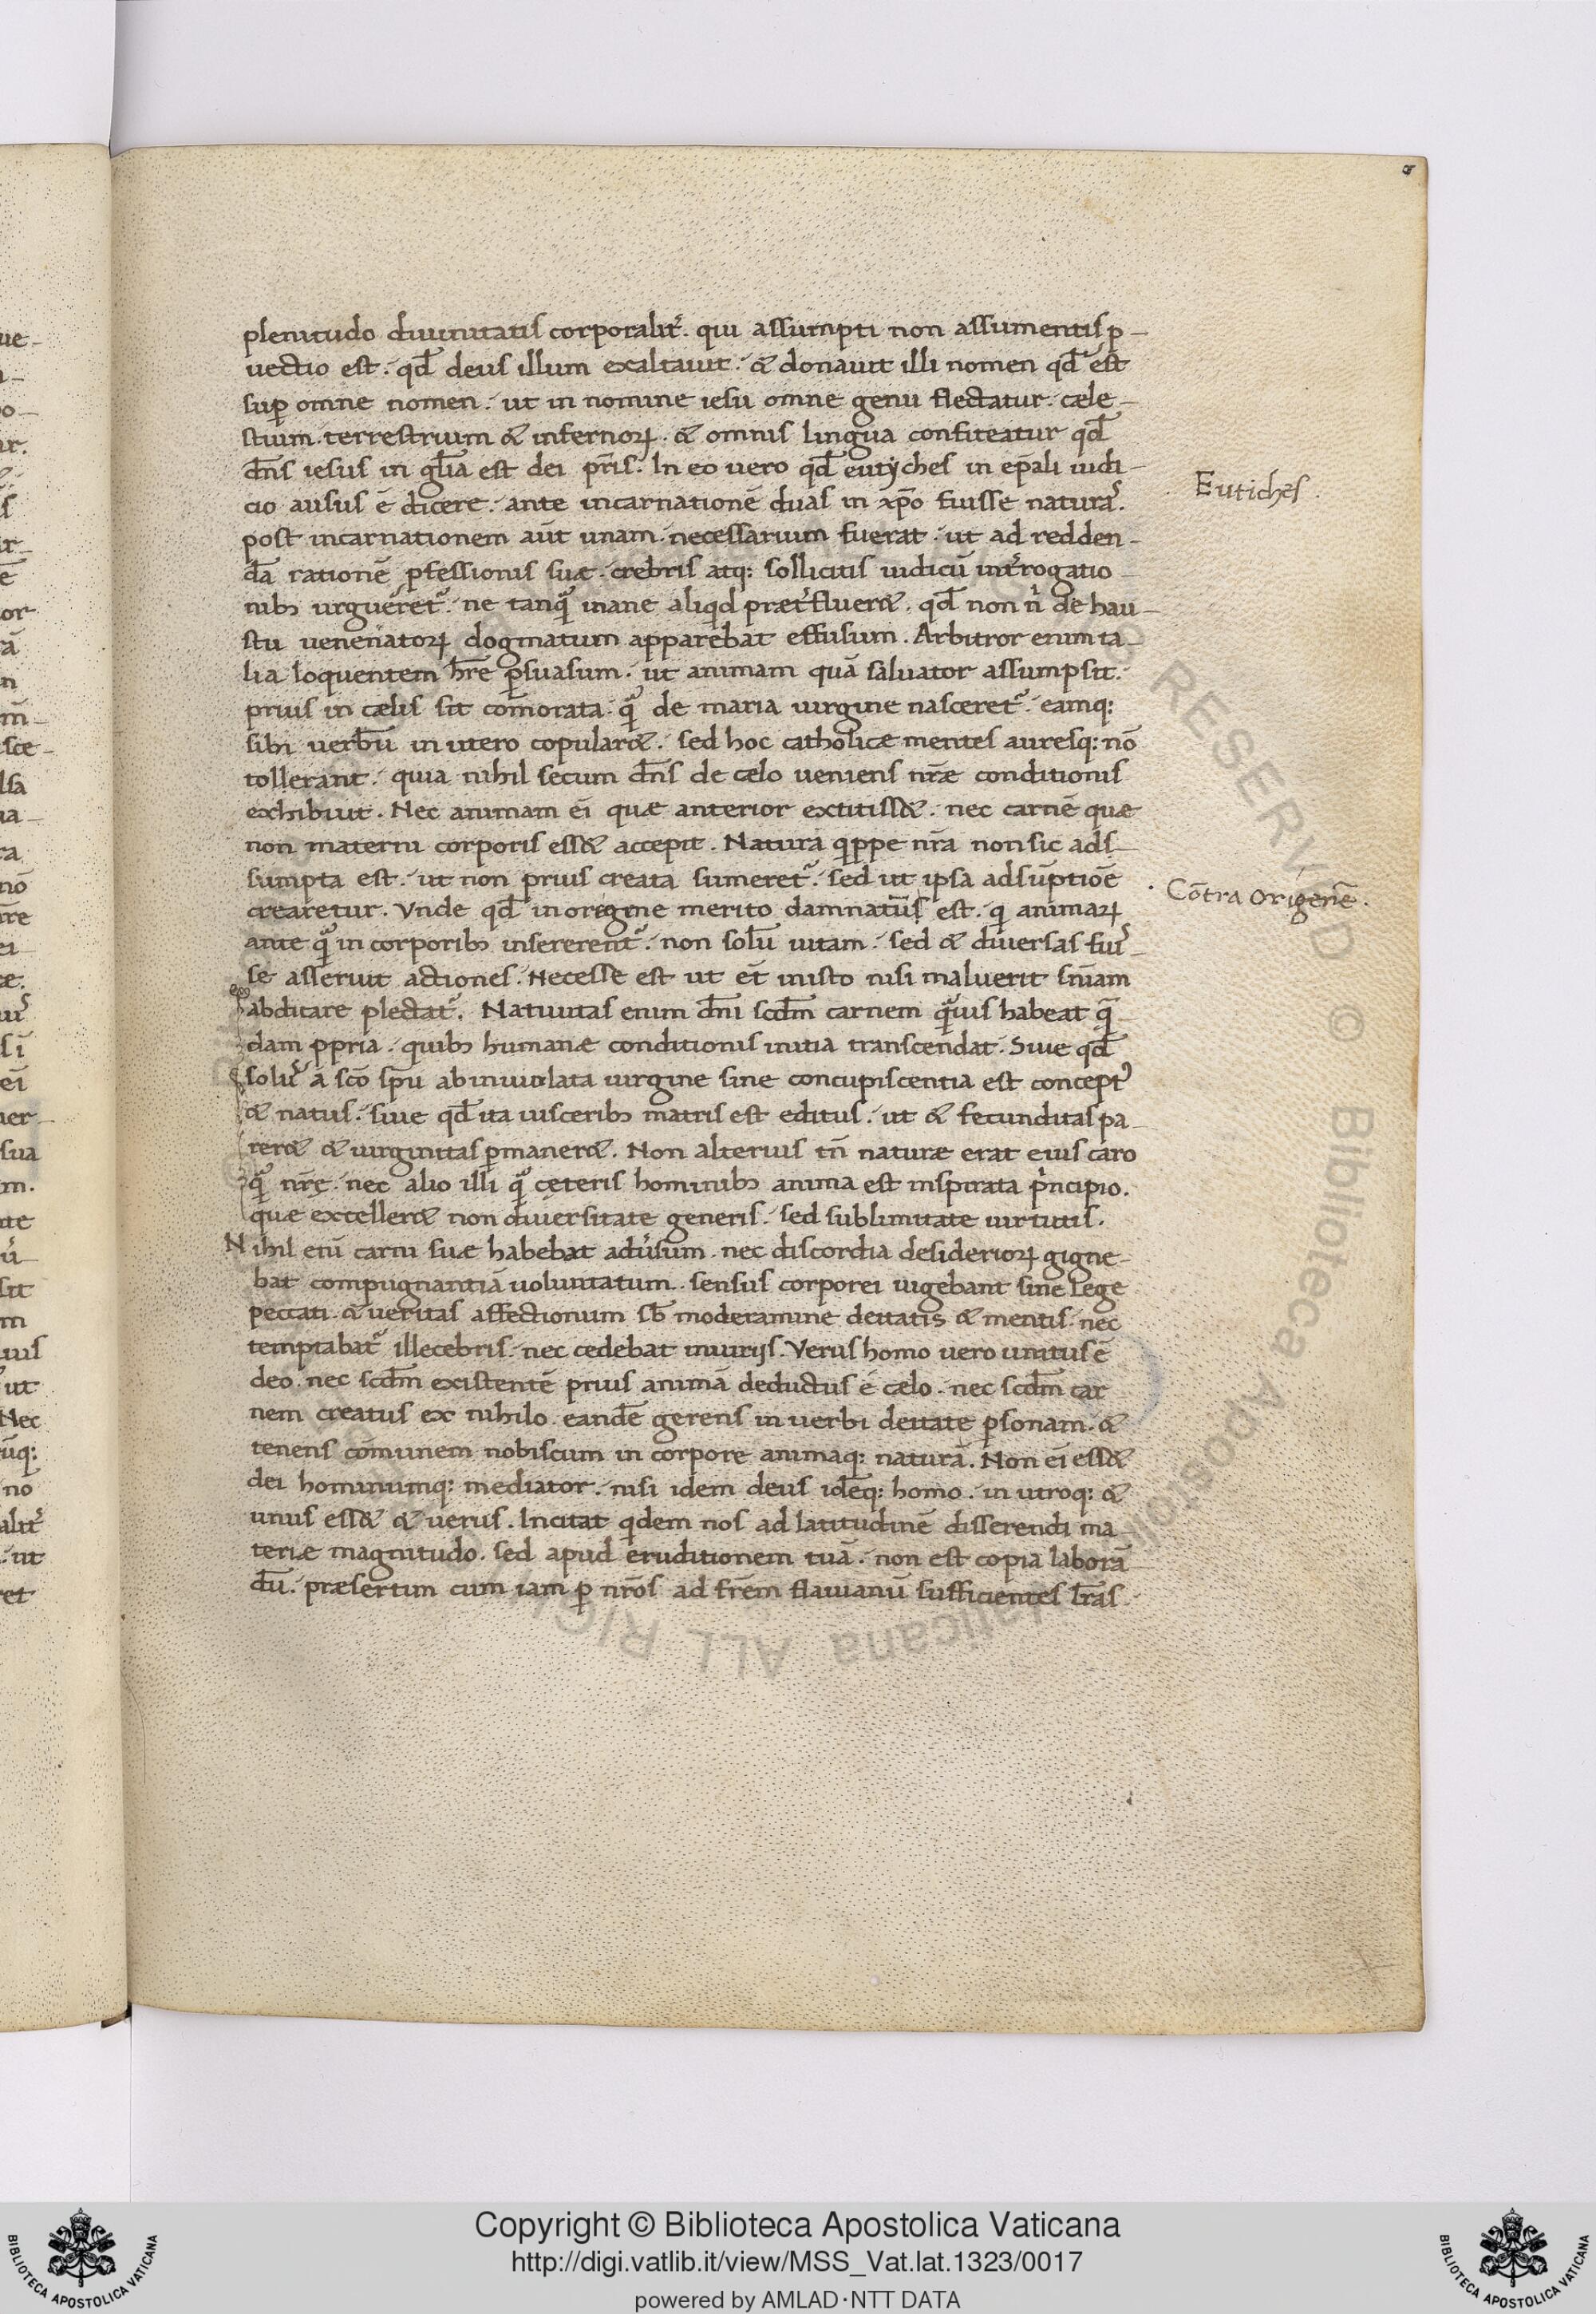 plenitudo diuinitatis corporalit᷑. qui assumpti non assumentis ꝓ-
uectio est. qđ deus illum exaltauit. & donauit illi nomen qđ est
suꝑ omne nomen. ut in nomine iesu omne genu flectatur. cæle-
stium. terrestrium & infernoꝝ. & omnis lingua confiteatur qđ
dn̄s iesus in gl̄ia est dei pr̄is. In eo uero qđ eutyches in ep̄ali iudi-
cio ausus ē dicere. ante incarnationē duas in xp̄o fuisse natura᷑.
post incarnationem aūt unam. necessarium fuerat. ut ad redden-
dā rationē ꝓfessionis suæ. crebris atq: sollicitis iudicū int᷑rogatio-
nibꝫ urgueret᷑. ne tanq᷑ inane aliqid præt᷑flueret. qđ non n᷑ de hau-
stu uenenatoꝝ dogmatum apparebat effusum. Arbitror enim ta-
lia loquentem hr̄e ꝑsuasum. ut animam quā saluator assumpsit.
prius in cælis sit com̄orata. q᷑ de maria uirgine nasceret᷑. eamq:
sibi uerbū in utero copular&. sed hoc catholicæ mentes auresq: nō
tollerant. quia nihil secum dn̄s de cælo ueniens nr̄æ conditionis
exhibuit. Nec animam ei quæ anterior extitiss&. nec carnē quæ
non materni corporis ess& accepit. Natura qippe nr̄a non sic ads-
sumpta est. ut non prius creata sumeret᷑. sed ut ipsa adsūptiōe
crearetur. Vnde qđ in origine merito damnatus est. q animaꝝ
ante q᷑ in corporibꝫ insererent᷑. non solū uitam. sed & diuersas fui᷑-
se asseruit actiones. Necesse est ut et̄ in isto nisi maluerit sn̄iam
abdicare plectat᷑. Natiuitas enim dn̄i scdm̄ carnem q᷑uis habeat q̄-
dam ꝓpria. quibꝫ humanæ conditionis initia transcendat. Siue qđ
solu᷑ a sc̄o sp̄u ab inuiolata uirgine sine concupiscentia est concept᷑
& natus. siue qđ ita uisceribꝫ matris est editus. ut & fecunditas pa-
rer& & uirginitas ꝑmaner&. Non alterius tn̄ naturæ erat eius caro
q᷑ nr̄ę. nec alio illi q᷑ cęteris hominibꝫ anima est inspirata p᷑ncipio.
quæ exceller& non diuersitate generis. sed sublimitate uirtutis.
Nihil eni᷑ carni suæ habebat adu᷑sum. nec discordia desiderioꝝ gigne-
bat compugnantiā uoluntatum. sensus corporei uigebant sine Lege
peccati. & ueritas affectionum sb̄ moderamine deitatis & mentis. nec
temptabat᷑ illecebris. nec cedebat iniurijs. Verus homo uero unitus ē
deo. nec scdm̄ existentē prius animā deductus é cælo. nec scdm̄ car
nem creatus ex nihilo. eandē gerens in uerbi deitate ꝑsonam. &
tenens com̄unem nobiscum in corpore animaq: naturā. Non ei ess&
dei hominumq: mediator. nisi idem deus idēq: homo. in utroq: &
unus ess& & uerus. Incitat qidem nos ad latitudinē disserendi ma-
teriæ magnitudo. sed apud eruditionem tuā. non est copia laborā
dū. præsertim cum iam ꝑ nr̄os ad fr̄em flauianū sufficientes lr̄as
Eutiches.
Cōtra origenē.
Copyright © Biblioteca Apostolica Vaticana
http://digi.vatlib.it/view/MSS_Vat.lat.1323/0017
powered by AMLAD·NTT DATA